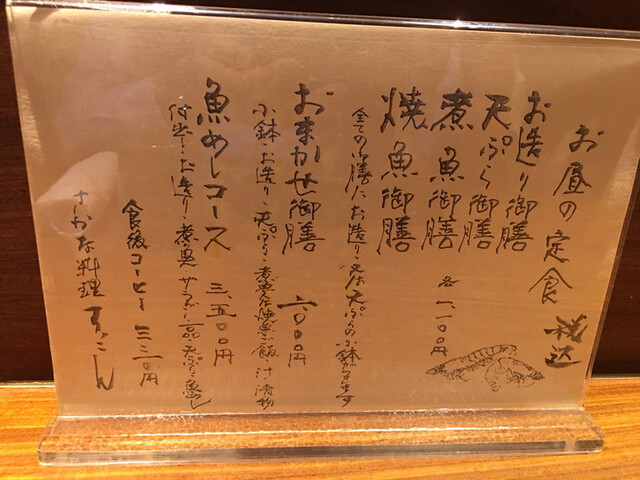 お昼の定食 税込
お造り御膳
天ぷら御膳
煮魚御膳 各一、一〇〇円
焼魚御膳
全ての御膳にお造り又は天ぷらの小鉢が付きます
おまかせ御膳
小鉢・お造り・天ぷら・煮魚又は焼魚・ご飯・汁・漬物
魚めしコース 三、五〇〇円
お造り・煮魚 サラダ 一品 天ぷら 魚めし
食後コーヒー 三三〇円
さかな料理